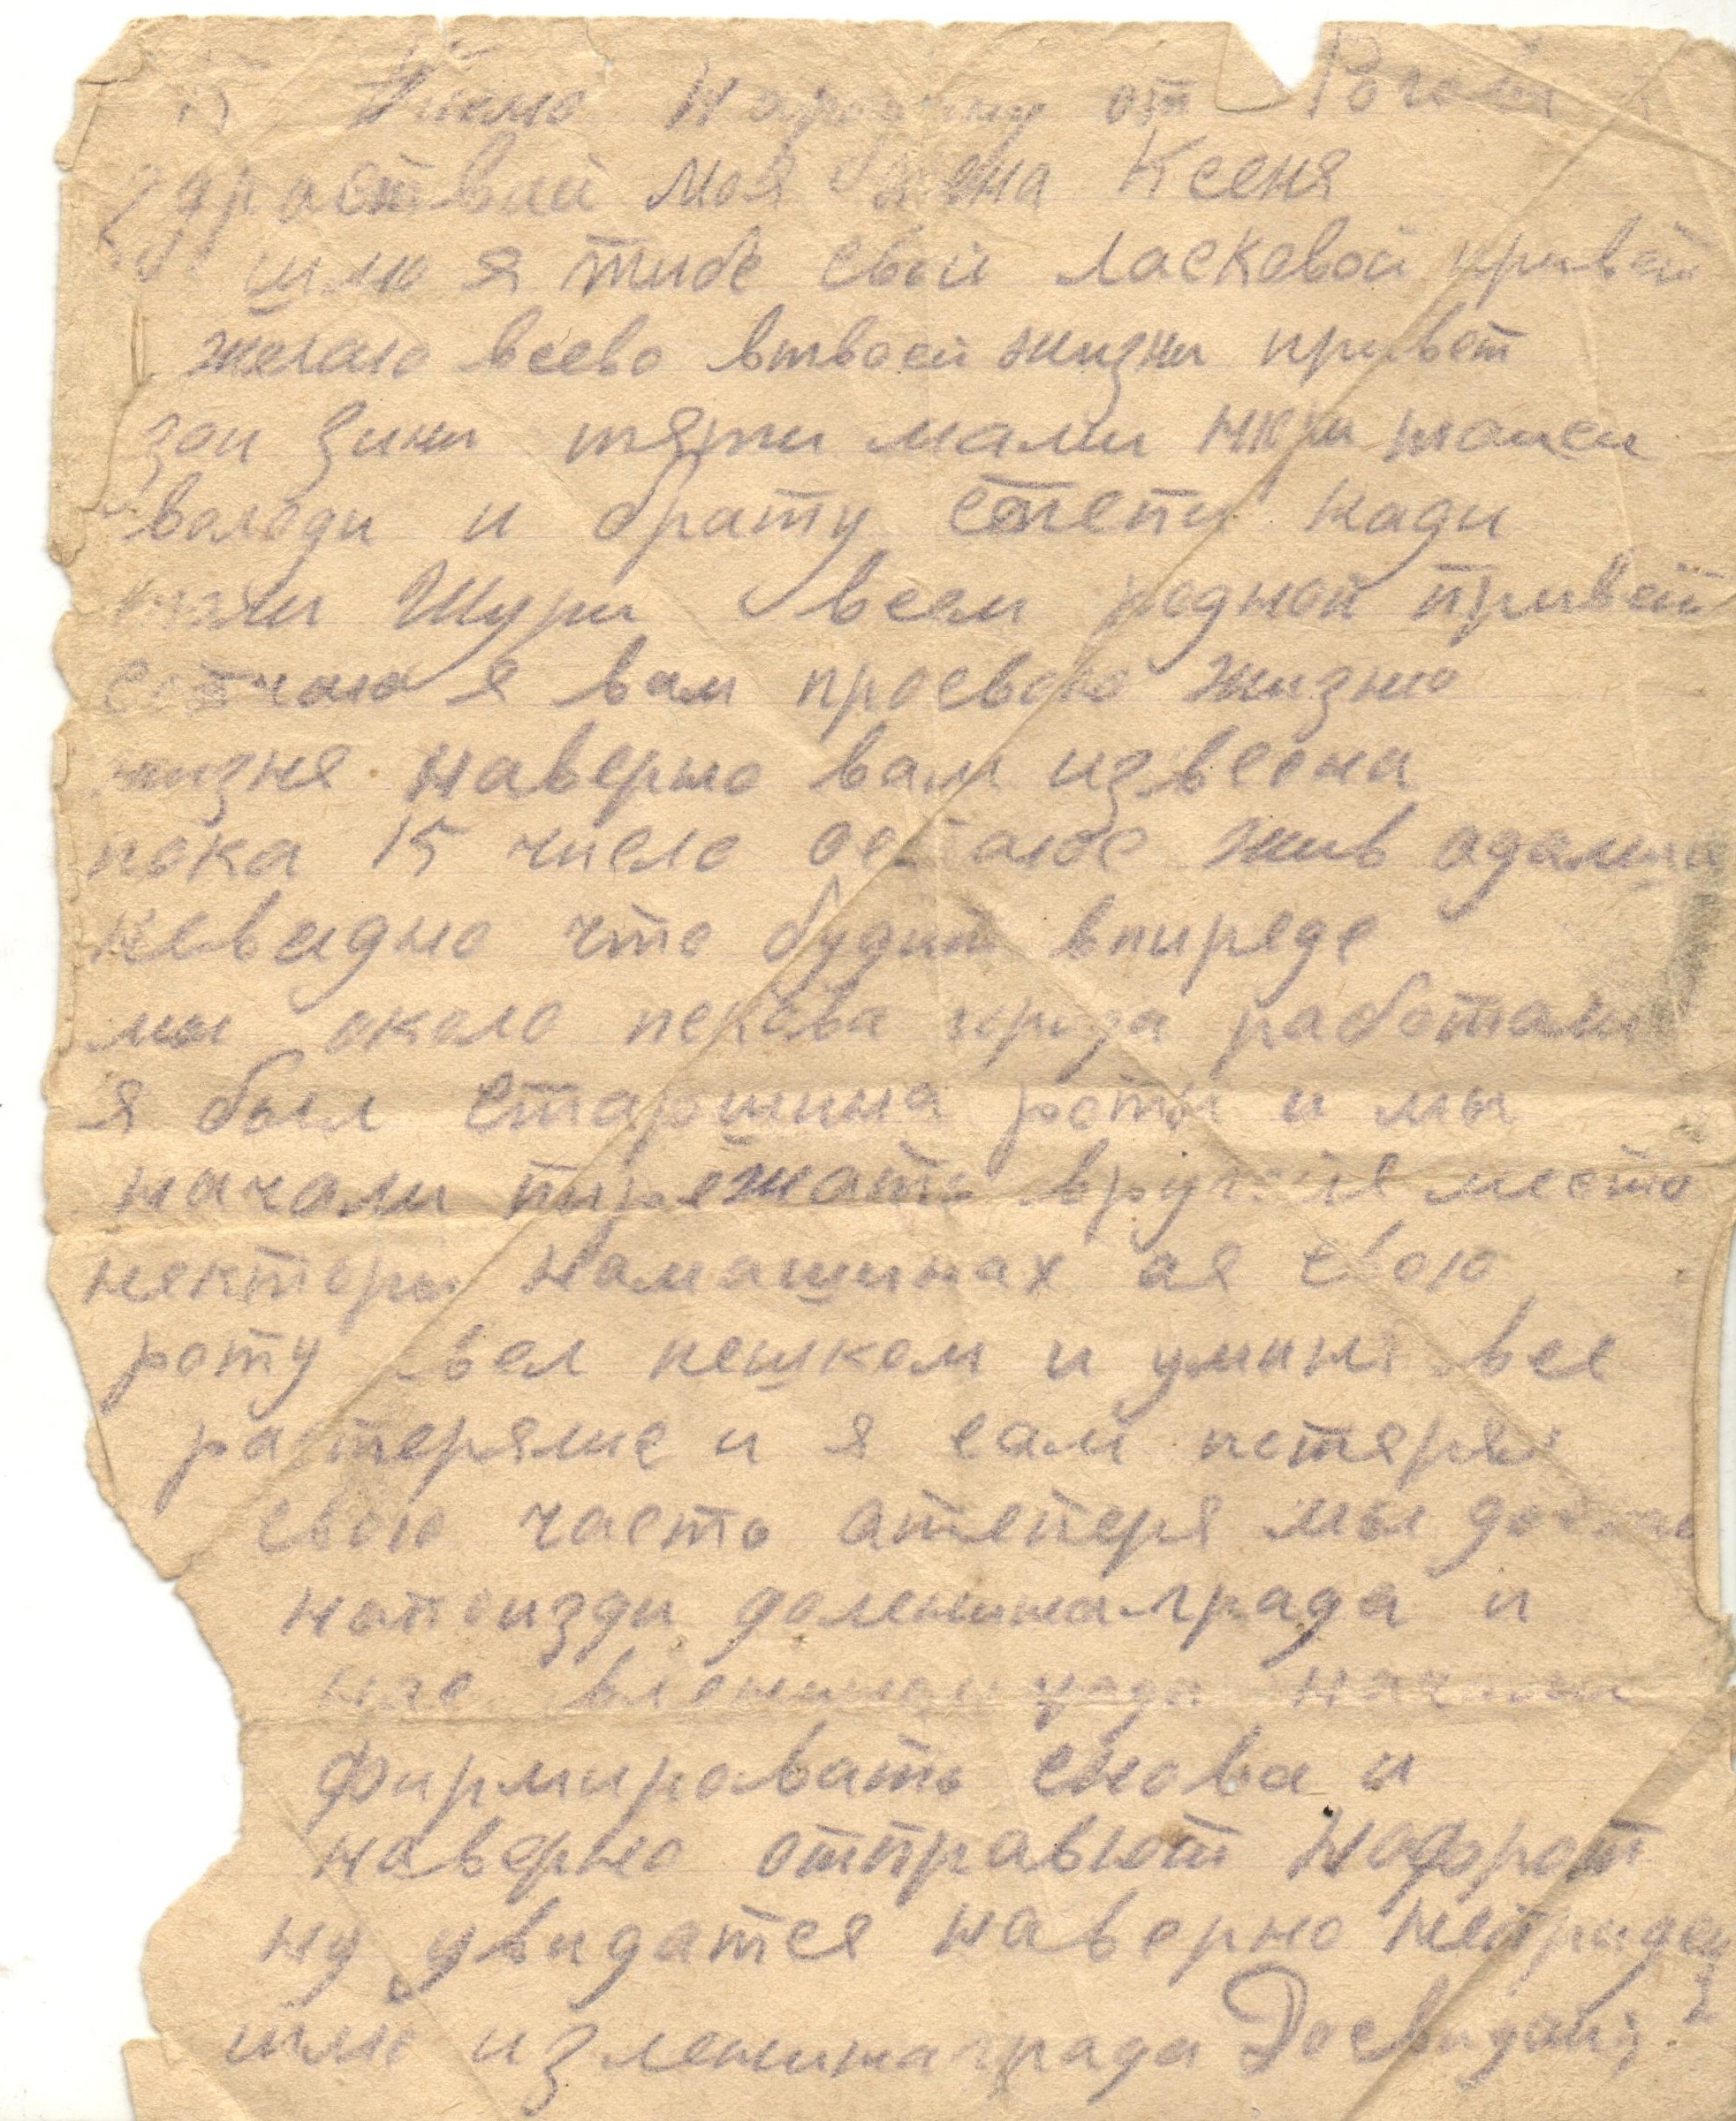 от
здраствай моя жена Ксеня
шлю я тибе свой ласковой привет
желаю всево втвоей жизни привет
зои зини тяти мами
володи и брату
Шури всем родной привет
я вам просвою жизню
жизня наверно вам извесна
пока 15 число остаюсе жив
невидно что будит впиреде
мы около пскова города работали
я был старшина роты и мы
начали пирежать место
некторы намашинах ая свою
роту вел пешком и уминя все
растерялис и я сам потерял
свою часть атепере мы
напоизди доленинаграда и
нас начали
фирмировать снова и
наверно отправют нафрот
ну увидатся наверно непридец
шлю из ленинаграда Досвидания